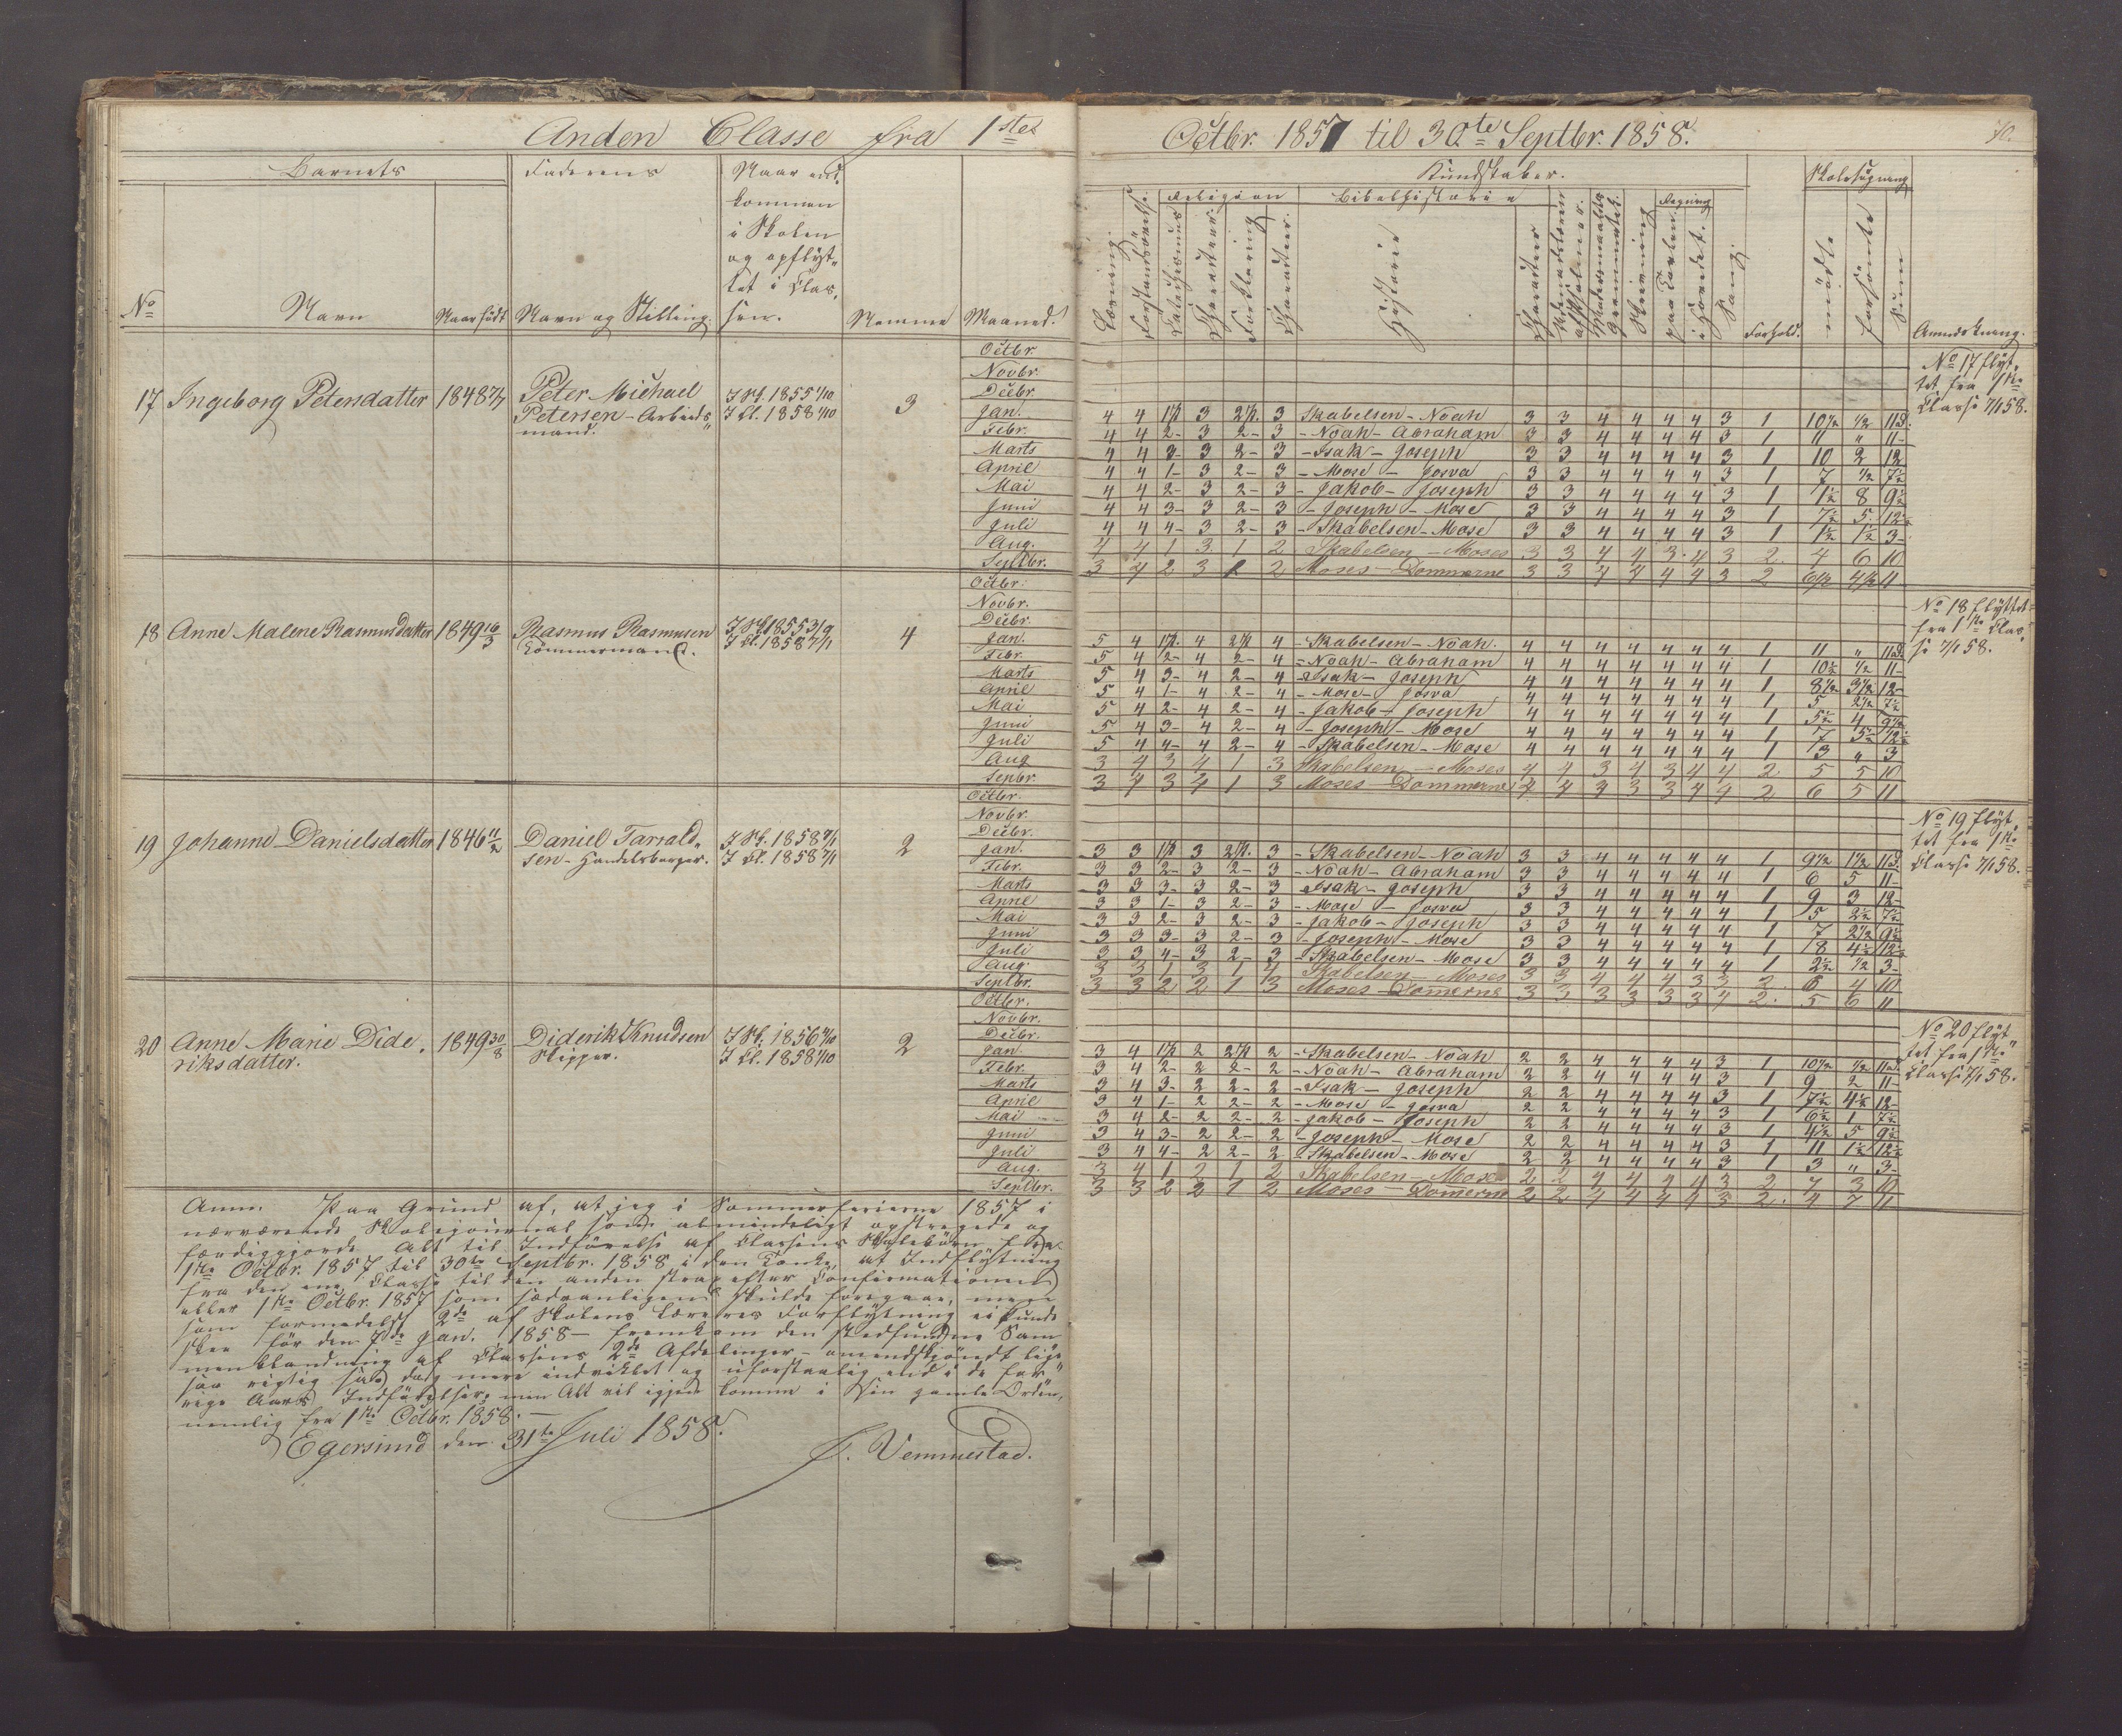 Anden Classe fra 1stes
Barnets Faderens Naar ind-
kommen
i Skolen
og opflyt-
tet i Clas-
No Navn Naar født Navn og Stilling. sen. Nemme Maaned.
Octbr.
Novbr.
Decbr.
17 Ingeborg Petersdatter 1848 Peter Michael I Sk. 1855 1/10 3 Jan.
Petersen - Arbeids- I Cl. 1858 Febr.
mand. Marts
April
Mai
Juni
Juli
Aug.
Septbr.
Octbr.
Novbr.
18 Anne Malene Rasmusdatter 1849 16/3 Rasmus Rasmussen I Sk. 1855 4 Decbr.
Tömmermand. I Cl. 1858 7/1 Jan.
Febr.
Marts
April
Mai
Juni
Juli
Aug.
Sepbr.
Octbr.
Novbr.
19 Johanne Danielsdatter 1846 11/2 Daniel Tarald- I Sk. 1858 7/1 2 Decbr.
sen - Handelsborger. I Cl. 1858 7/1 Jan.
Febr.
Marts
April
Mai
Juni
Juli
Aug.
Septbr.
Octbr.
Novbr.
20 Anne Marie Dide- 1849 30/8 Diderik Knudsen I Sk. 1856 2 Decbr.
riksdatter. Skipper. I Cl. 1858 Jan.
Febr.
Marts
April
Mai
Juni
Juli
Aug.
Septbr.
Anm. Paa Grund af, at jeg i Sommerferierne 1857 i
nærværende Skolejournal som almindeligt opstregede og
færdiggjorde Alt til Indførelse af Classens Skolebørn fra
1ste Octbr. 1857 til 30te Septbr. 1858 i den Tanke, at Indflytning
fra den ene Classe til den anden strax efter Confirmationen
eller 1ste Octbr. 1857 som sædvanligen skulde foregaae, men
som formedelst 2de af Skolens Læreres Forflytning ei kunde
skee før den 7de Jan. 1858 - fremkom den stedfundne Sam-
menblandning af Classens 2de Afdelinger - omendskjøndt lige
saa rigtig saa dog mere indviklet og uforstaaelig end i de for-
rige Aars Indførelser; men Alt vil igjen komme i sin gamle Orden,
nemlig fra 1ste Octbr. 1858. -
Egersund den 31te Juli 1858.
Vemmestad.
Octbr. 1857 til 30te Septbr. 1858. 70.
Kundskaber. Skolesøgning
Religion Bibelhistorie Regning
Læsning. Forstandsøvelse. Catechismus Charakteer. Forklaring Charakteer. Historie Charakteer Modersmaalets Grammatik. Skrivning paa Tavlen. i Hovedet. Sang. Forhold. mødte forsømte Sum Anmærkning.
No 17 flyt-
tet fra 1ste
Classe 7/1 58.
4 4 1 1/2 3 2 1/2. 3 Skabelsen - Noah 3 3 4 4 4 4 3 1 10 1/2 1/2 11 d.
4 4 2 - 3 2 - 3 - Noah - Abraham 3 3 4 4 4 4 3 1 11 " 11 -
4 4 3 - 3 2 - 3 - Isak - Joseph 3 3 4 4 4 4 3 1 10 2 12
4 4 1 - 3 2 - 3 - Mose - Josva 3 3 4 4 4 4 3 1 7 1/2 7 1/2
4 4 2 - 3 2 - 3 - Jakob - Joseph 3 3 4 4 4 4 3 1 1 1/2 8 9 1/2
4 4 3 - 3 2 - 3 - Joseph - Mose 3 3 4 4 4 4 3 1 7 1/2 5 12 1/2
4 4 4 - 3 2 - 3 - Skabelsen - Mose 3 3 4 4 4 4 3 1 1 1/2 1 1/2 3 -
4 4 1 3 1 2 Skabelsen - Moses 3 3 4 4 3 4 3 2. 4 6 10
3 4 2 3 1 2 Moses - Dommerne 3 3 4 4 4 4 3 2 6 1/2 4 1/2 11
No 18 flyttet
fra 1ste Clas-
se 7/1 58.
5 4 1 1/2. 4 2 1/2 4 - Skabelsen - Noah. 4 4 4 4 4 4 4 1 11 " 11 d.
5 4 2 - 4 2 - 4 - Noah - Abraham 4 4 4 4 4 4 4 1 10 1/2 1/2 11 -
5 4 3 - 4 2 - 4 - Isak - Joseph 4 4 4 4 4 4 4 1 8 1/2 3 1/2 12 -
5 4 1 - 4 2 - 4 - Mose - Josva 4 4 4 4 4 4 4 1 5 2 1/2 7 1/2
5 4 2 - 4 2 - 4 - Jakob - Joseph 4 4 4 4 4 4 4 1 5 1/2 4 9 1/2
5 4 3 - 4 2 - 4 - Joseph - Mose 4 4 4 4 4 4 4 1 7 5 1/2 12 1/2
5 4 4 - 4 2 - 4 - Skabelsen - Mose 4 4 4 4 4 4 4 1 3 " 3
3 4 3 4 1 3 Skabelsen - Moses 4 4 3 4 3 4 4 2 5 5 10
3 4 3 4 1 3 Moses - Dommerne 4 4 4 3 3 4 4 2 6 5 11
No 19 flyt-
tet fra 1ste
Classe 7/1 58.
3 3 1 1/2 3 2 1/2. 3 - Skabelsen - Noah 3 3 4 4 4 4 4 1 9 1/2 1 1/2 11 d.
3 3 2 - 3 2 - 3 - Noah - Abraham 3 3 4 4 4 4 4 1 6 5 11 -
3 3 3 - 3 2 - 3 - Isak - Joseph 3 3 4 4 4 4 4 1 9 3 12 -
3 3 1 - 3 2 - 3 - Mose - Josva 3 3 4 4 4 4 4 1 5 2 1/2 7 1/2
3 3 2 - 3 2 - 3 - Jakob - Joseph 3 3 4 4 4 4 4 1 7 2 1/2 9 1/2
3 3 3 - 3 2 - 3 - Joseph - Mose 3 3 4 4 4 4 4 1 8 4 1/2 12 1/2
3 3 4 - 3 2 - 3 - Skabelsen - Mose 3 3 4 4 4 4 4 1 2 1/2 1/2 3 -
3 3 1 3 1 4 Skabelsen - Moses 3 3 4 4 4 3 3 2. 6 4 10
3 3 2 2 1 3 Moses - Domerne 3 3 3 3 3 3 4 2. 5 6 11
No 20 flyt-
tet fra 1ste
Classe 7/1 58.
3 4 1 1/2 2 2 1/2 2 - Skabelsen - Noah 2 2 4 4 4 4 3 1 10 1/2 1/2 11 d.
3 4 2 - 2 2 - 2 - Noah - Abraham 2 2 4 4 4 4 3 1 9 2 11 -
3 4 3 - 2 2 - 2 - Isak - Joseph 2 2 4 4 4 4 3 1 7 1/2 4 1/2 12
3 4 1 - 2 2 - 2 - Mose - Josva 2 2 4 4 4 4 3 1 6 1/2 1 7 1/2
3 4 2 - 2 2 - 2 - Jakob - Joseph 2 2 4 4 4 4 3 1 4 1/2 5 9 1/2
3 4 3 - 2 2 - 2 - Joseph - Mose 2 2 4 4 4 4 3 1 11 1 1/2 12 1/2
3 4 4 - 2 2 - 2 - Skabelsen - Mose 2 2 4 4 4 4 3 1 3 " 3 -
3 4 1 2 1 2 Skabelsen - Moses 2 2 4 4 4 4 3 2 7 3 10
3 3 2 2 1 2 Moses - Domerne 2 2 4 4 4 4 3 2. 4 7 11